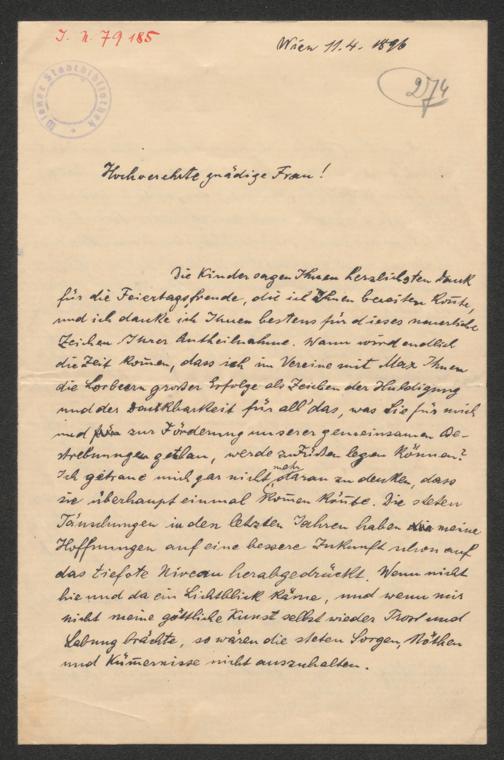 I. N. 79185
Wien 11.4. 1896
274
Wiener Stadtbibliothek
Hochverehrte gnädige Frau!
Die Kinder sagen Ihnen herzlichsten Dank
für die Feiertagsfreude, die ich Ihnen bereiten konnte,
und ich danke ich Ihnen bestens für dieses neuerliche
Zeichen Ihrer Antheilnahme. Wann wird endlich
die Zeit kom̄en, dass ich im Vereine mit Max Ihnen
die Lorbeern großer Erfolge als Zeichen der Huldigung
und der Dankbarkeit für all' das, was Sie für mich
und zur Förderung unserer gemeinsamen Be-
strebungen gethan, werde zu Füßen legen können?
Ich getraue mich gar nicht mehr daran zu denken, dass
sie überhaupt einmal kom̄en könnte. Die steten
Täuschungen in den letzten Jahren haben meine
Hoffnungen auf eine bessere Zukunft schon auf
das tiefste Niveau herabgedrückt. Wenn nicht
hie und da ein Lichtblick käme, und wenn mir
nicht meine göttliche Kunst selbst wieder Trost und
Labung brächte, so wären die steten Sorgen, Nöthen
und Küm̄ernisse nicht auszuhalten.